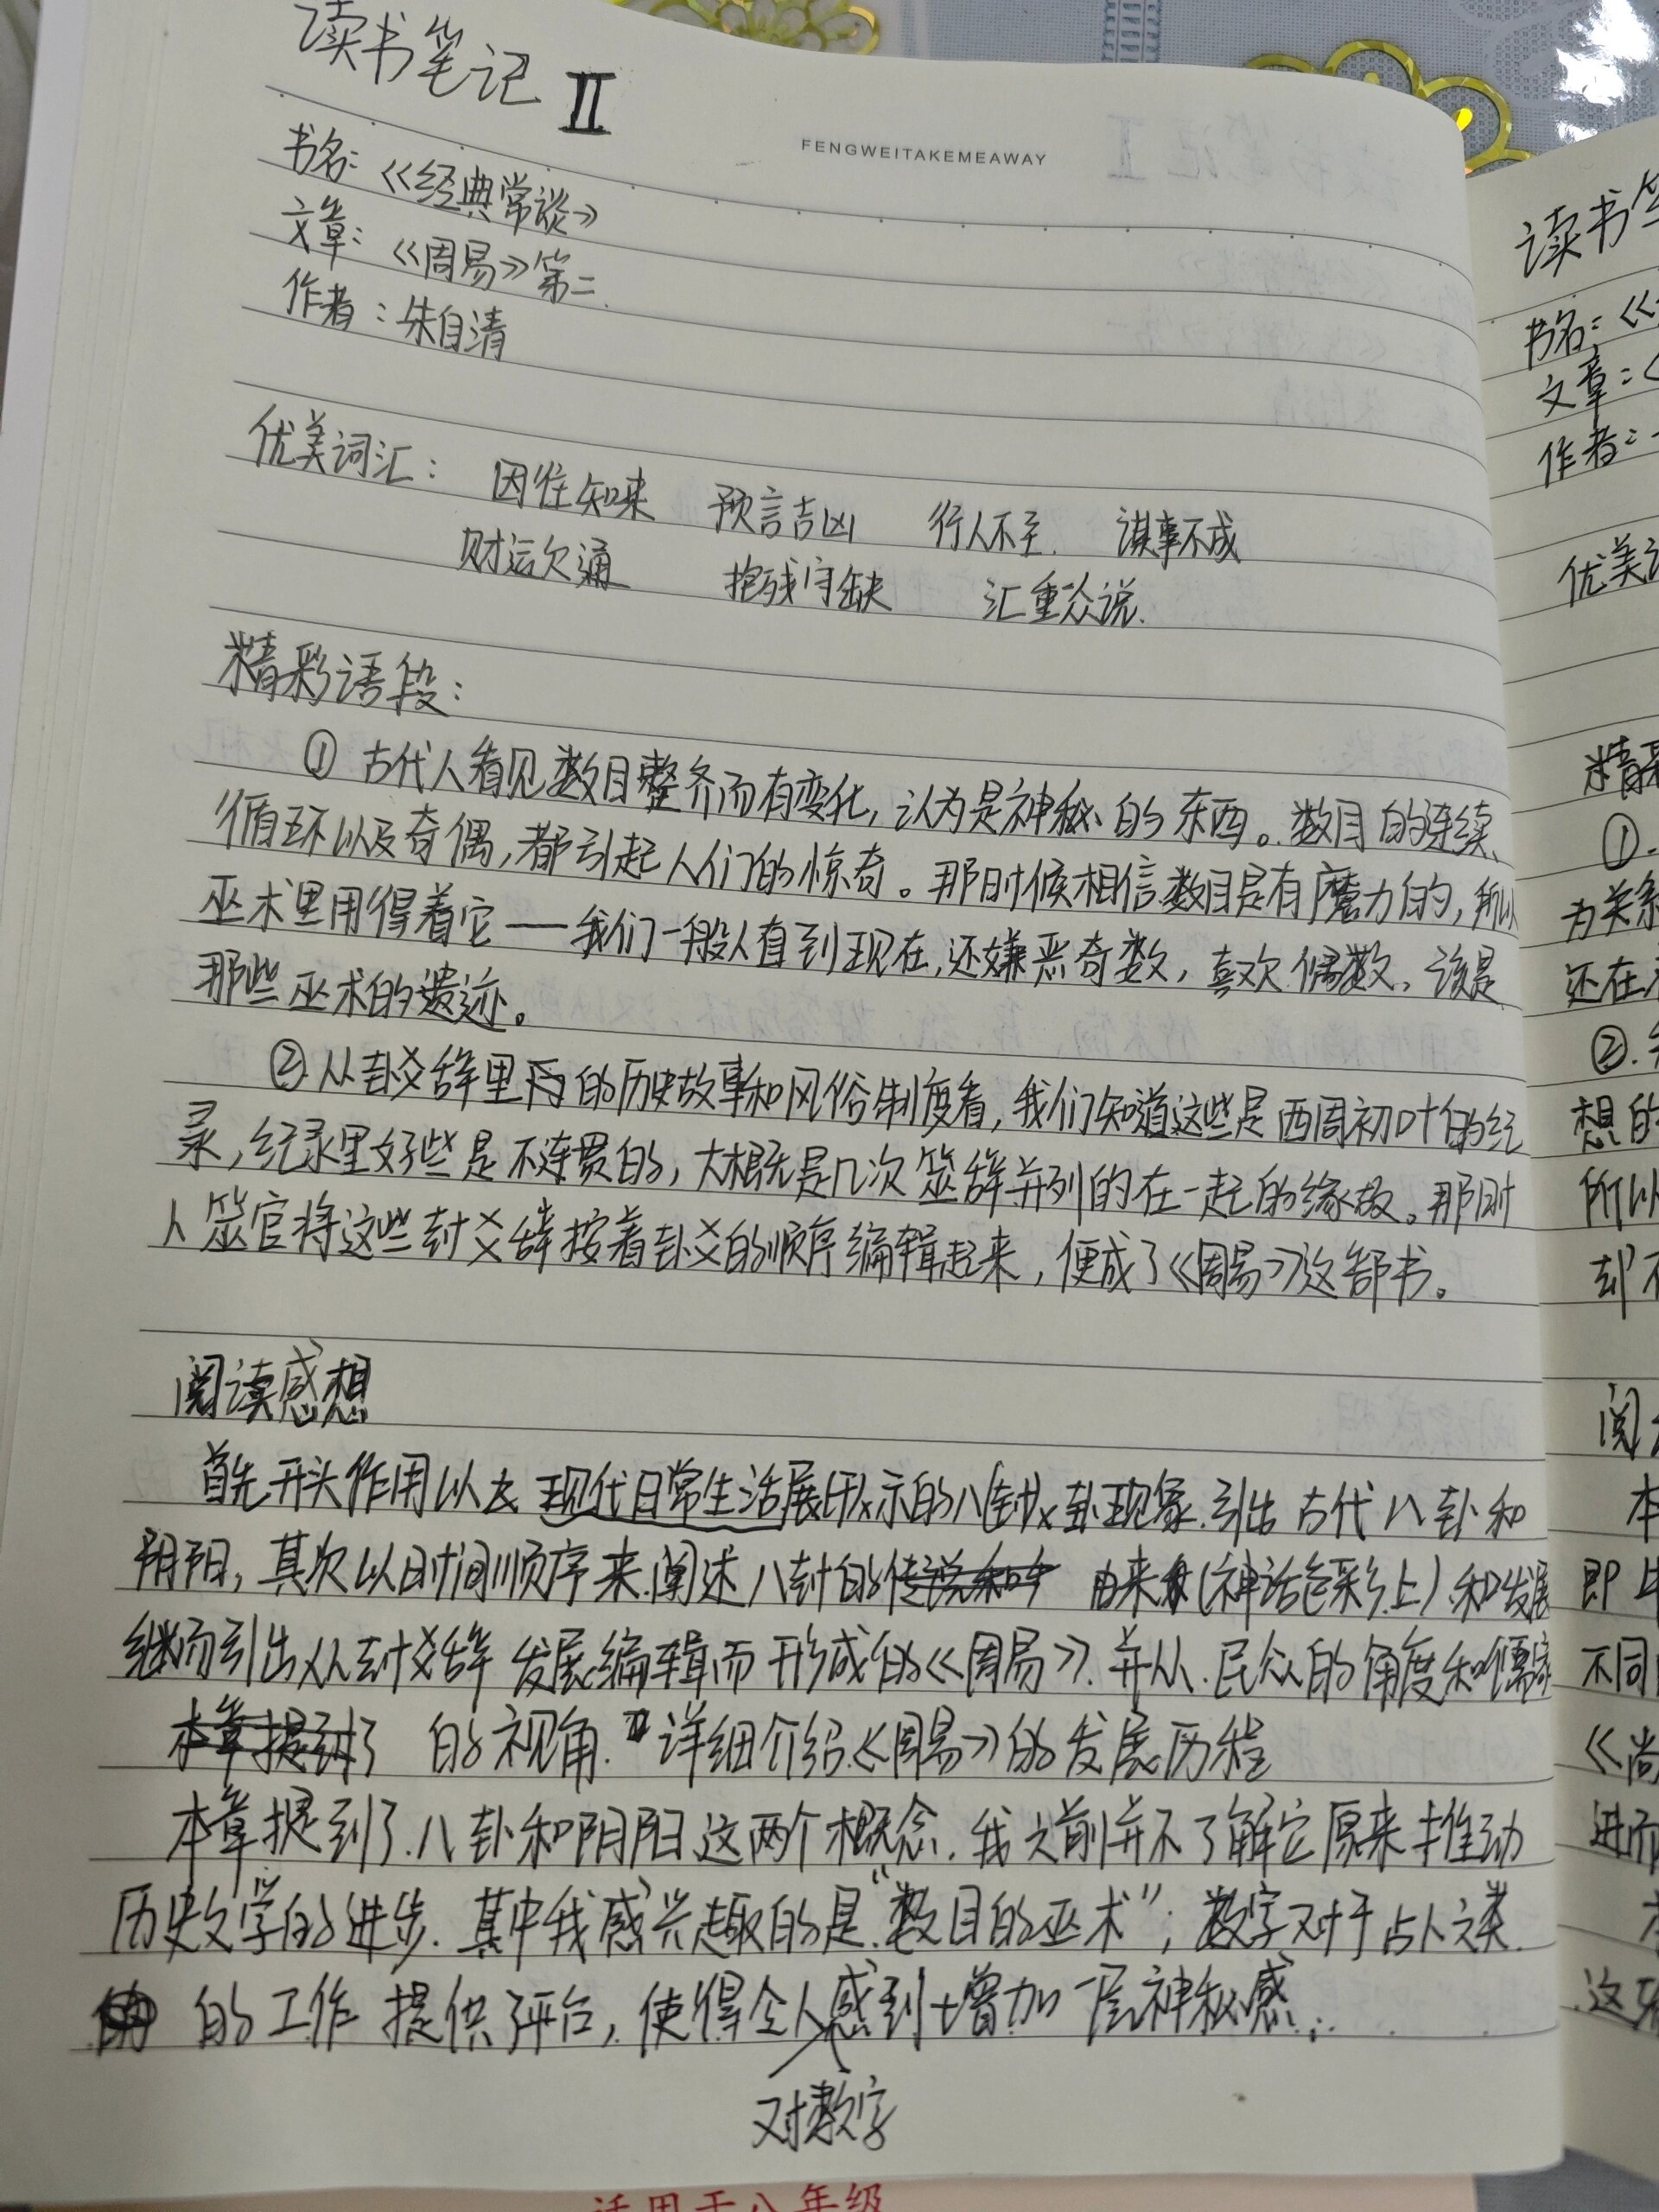 读书笔记 Ⅱ
FENGWEITAKEMEAWAY
书名：《经典常谈》
文章：《周易》第二
作者：朱自清
优美词汇：因往知来 预言吉凶 行人不至 谋事不成
财运欠通 抱残守缺 汇重众说
精彩语段：
① 古代人看见数目整齐而有变化，认为是神秘的东西。数目的连续、
循环以及奇偶，都引起人们的惊奇。那时候相信数目是有魔力的，所以
巫术里用得着它——我们一般人直到现在，还嫌恶奇数，喜欢偶数，该是
那些巫术的遗迹。
②从卦爻辞里的历史故事和风俗制度看，我们知道这些是西周初叶的纪
录，纪录里好些是不连贯的，大概是几次筮辞并列的在一起的缘故。那时
人筮官将这些卦爻辞按着卦爻的顺序编辑起来，便成了《周易》这部书。
阅读感想
首先开头作用以现代日常生活展示的八卦现象.引出古代八卦和
阴阳，其次以时间顺序来阐述八卦的由来(神话色彩上)和发展
继而引出从卦爻辞发展编辑而形成的《周易》.并从.民众的角度和儒家
本章提到了 的视角.详细介绍《周易》的发展历程
本章提到了八卦和阴阳这两个概念.我之前并不了解它原来推动
历史文学的进步.其中我感兴趣的是“数目的巫术”；数字对于占卜之类
的工作提供了平台，使得令人感到增加一层神秘感.
对数字
适用于八年级
读书
书名：《
文章：《
作者：
优美
精
①.
为关系
还在
②.
想的
所以
却不
阅
本
即
不同
《尚
进而
这